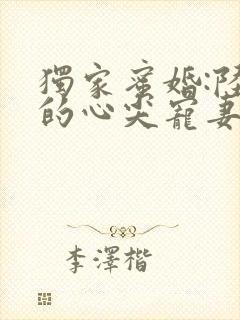 獨家蜜婚:陸
的心尖寵妻
李澤楷